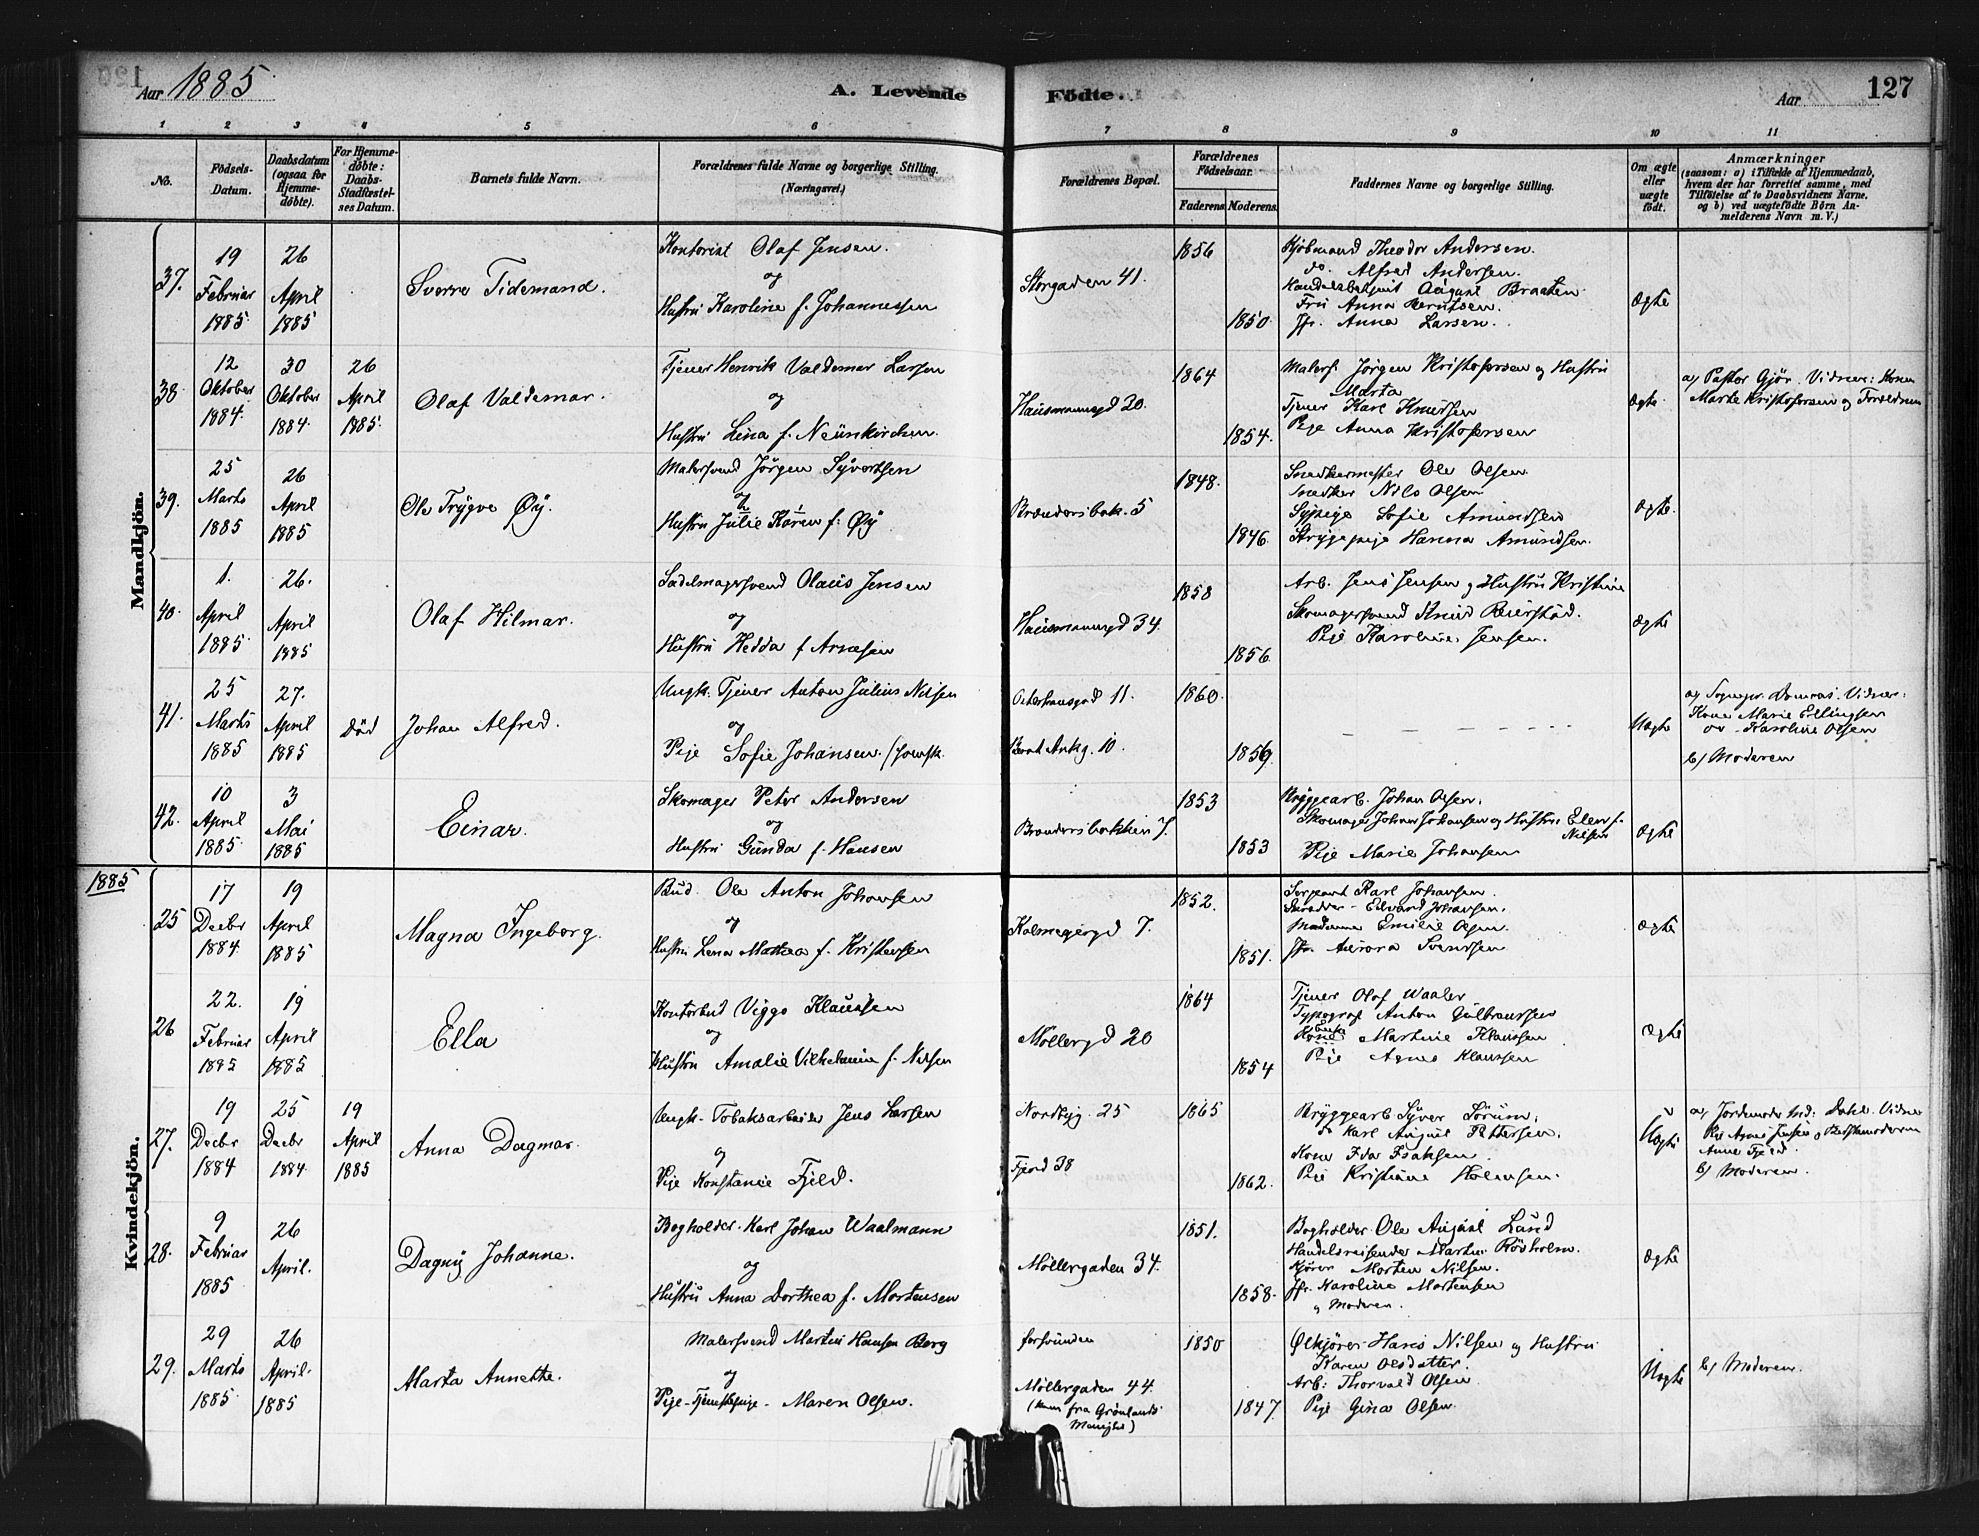 Aar 1885.
A. Levende Födte.
Aar
127
1 2 3 4 5 6 7 8 9 10 11
No.
Födsels-Datum.
Daabsdatum (ogsaa for Hjemmedöbte).
For Hjemmedöbte: Daabs-Stadfæstelses Datum.
Barnets fulde Navn.
Forældrenes fulde Navne og borgerlige Stilling. (Næringsvei.)
Forældrenes Bopæl.
Forældrenes Födselsaar.
Faderens.
Moderens.
Faddernes Navne og borgerlige Stilling.
Om ægte eller uægte födt.
Anmærkninger
(saasom: a) i Tilfælde af Hjemmedaab, hvem der har forrettet samme, med Tilföielse af to Daabsvidners Navne. og b) ved uægtefödte Börn Anmelderens Navn m. V.)
Mandkjön.
37.
19 Februar 1885
26 April 1885
Sverre Tidemand.
Kontorist Olaf Jensen.
og
Hustru Karoline f. Johannessen
Storgaden 41.
1856
1850
Kjöbmand Theodor Andersen.
do. Alfred Andersen.
Handelsbetjent August Braaten
Fru Anna Berntsen.
Jfr. Anna Larsen.
Ægte
38.
12 Oktober 1884.
30 Oktober 1884.
26 April 1885.
Olaf Valdemar.
Tjener Henrik Valdemar Larsen
og
Hustru Lina f. Neunkirchen.
Hausmannsgd 30.
1864
1854.
Malers. Jörgen Kristofersen og Hustru
Marta
Tjener Karl Knudsen
Pige Anna Kristofersen
Ægte.
a) Pastor Gjör. Vidner: Konen
Marte Kristofersen og Forældrene
39.
25 Marts 1885
26 April 1885
Ole Trygve Øy.
Malersvend Jörgen Syvertsen
og
Hustru Julie Karen f. Øy
Brændersbak. 5
1848.
1846.
Snedkermester Ole Olsen
Snedker Nils Olsen
Sypige Sofie Amundsen
Strygepige Hanna Amundsen.
Ægte.
40.
1. April 1885
26. April 1885
Olaf Hilmar.
Sadelmagersvend Olaus Jensen
og
Hustru Hedda f. Arnesen
Hausmannsgd 34.
1858
1856.
Arb. Jens Jensen og Hustru Kristine
Skomagersvend Knud Beierstad.
Pige Karoline Jensen.
Ægte
41.
25 Marts 1885
27. April 1885
Död
Johan Alfred.
Ungk. Tjener Anton Julius Nilsen
og
Pige Sofie Johansen
Osterhausgad 11.
Bernt Ankg. 10.
1860.
1859.
Uægte
a) Sognepr. Vidner:
Kone Marie Ellingsen
og Karoline Olsen
b) Moderen
42.
10 April 1885
3 Mai 1885
Einar.
Skomager Peter Andersen
og
Hustru Gunda f. Hansen
Brændersbakken 7.
1853
1853
Bryggearb. Johan Olsen.
Skomager Johan Johansen og Hustru Ellen f.
Nilsen
Pige Marie Johansen
Ægte
1885
Kvindekjön.
25
17 Decbr 1884.
19 April 1885
Magna Ingeborg.
Bud. Ole Anton Johansen
og
Hustru Lena Mathea f. Kristensen
Kalmegergd 7.
1852.
1851.
Sergeant Karl Johansen.
Skrædder Edvard Johansen.
Madamme Emilie Olsen
Jfr. Aurora Svendsen
Ægte
26
22. Februar 1885
19 April 1885
Ella
Kontorbud Viggo Klaussen
og
Hustru Amalie Vilhelmine f. Nilsen
Möllergd 20
1864
1854
Tjener Olaf Waaler
Typograf Anton Gulbranssen
Enke Martine Klaussen
Pige Agnes Klaussen
Ægte
27.
19 Decbr 1884
25 Decbr 1884.
19 April 1885
Anna Dagmar.
Ungk. Tobaksarbeider Jens Larsen
og
Pige Konstance Fjeld.
Nordbyg. 25
Fjerd 38
1865
1862.
Bryggearb Syver Sörum.
do Karl August Pettersen.
Kone Ida Isaksen.
Pige Kristiane Halensen.
Uægte
a) Jordemoder Ind: Dahl. Vidner
Pige Agnes Jensen og Bedstemoderen
Anne Fjeld.
b) Moderen.
28.
9 Februar 1885
26 April.
Dagny Johanne.
Bogholder. Karl Johan Waalmann
og
Hustru Anna Dorthea f. Mortensen
Möllergaden 34.
1851.
1858.
Bogholder Ole August Lund
Handelsreisende Martin Rösholm.
Kjörer Morten Nilsen.
Jfr. Karoline Mortensen
og Moderen.
Ægte
29.
29 Marts 1885.
26 April. 1885
Marta Annette.
Malersvend Martin Hansen Berg
og
Pige-Tjenestepige- Maren Olsen.
forsvunden
Möllergaden 44.
(kom fra Grönlands
Menighed)
1850
1847.
Ölkjörer Hans Nilsen og Hustru
Karen Olsdatter.
Arb: Thorvald Olsen.
Pige Gina Olsen.
Uægte
b) Moderen.